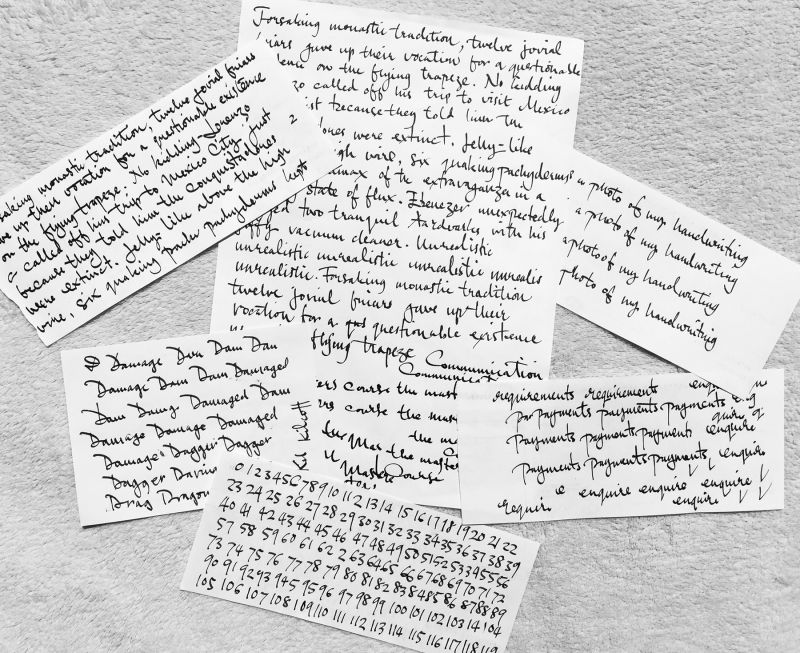 Forsaking monastic tradition, twelve jovial
friars gave up their vocation for a questionable
on the flying trapeze. No kidding
called off his trip to visit Mexico
because they told him the
were extinct. Jelly-like
wire, six quaking pachyderms
of the extravaganza in a
state of flux. Ebenezer unexpectedly
two tranquil Aardvarks with his
vacuum cleaner. Unrealistic
unrealistic unrealistic unrealistic unrealis
unrealistic. Forsaking monastic tradition
twelve jovial friars gave up their
vocation for a questionable existence
flying trapeze Communication
Communicat
course the mast
course the mas
the m
the master
Master Course
saking monastic tradition, twelve jovial friars
up their vocation for a questionable existence
on the flying trapeze. No kidding-Lorenzo
called off his trip to Mexico City just
because they told him the conquistadores
were extinct. Jelly-like above the high
wire, six quaking pachyderms kept
2
a photo of my handwriting
a photo of my handwriting
a photo of my handwriting
photo of my handwriting
Damage Dam Dam Dam
Damage Dam Dam Damaged
Dam Damaged Dam
Damage Damage Damaged
Damage Dagger Dagger
Dagger
Drag Dragon
requirements requirement enqu
payments payments payments enq
payments payments payment enquire
payments payments payments enquir
requir e enquire enquire enquire
enquire
0 1 2 3 4 5 6 7 8 9 10 11 12 13 14 15 16 17 18 19 20 21 22
23 24 25 26 27 28 29 30 31 32 33 34 35 36 37 38 39
40 41 42 43 44 45 46 47 48 49 50 51 52 53 54 55 56
57 58 59 60 61 62 2 63 64 65 66 67 68 69 70 71 72
73 74 75 76 77 78 79 80 81 82 83 84 85 86 87 88 89
90 91 92 93 94 5 95 96 97 98 99 100 101 102 103 104
105 106 107 108 109 110 111 112 113 114 115 116 117 118 119